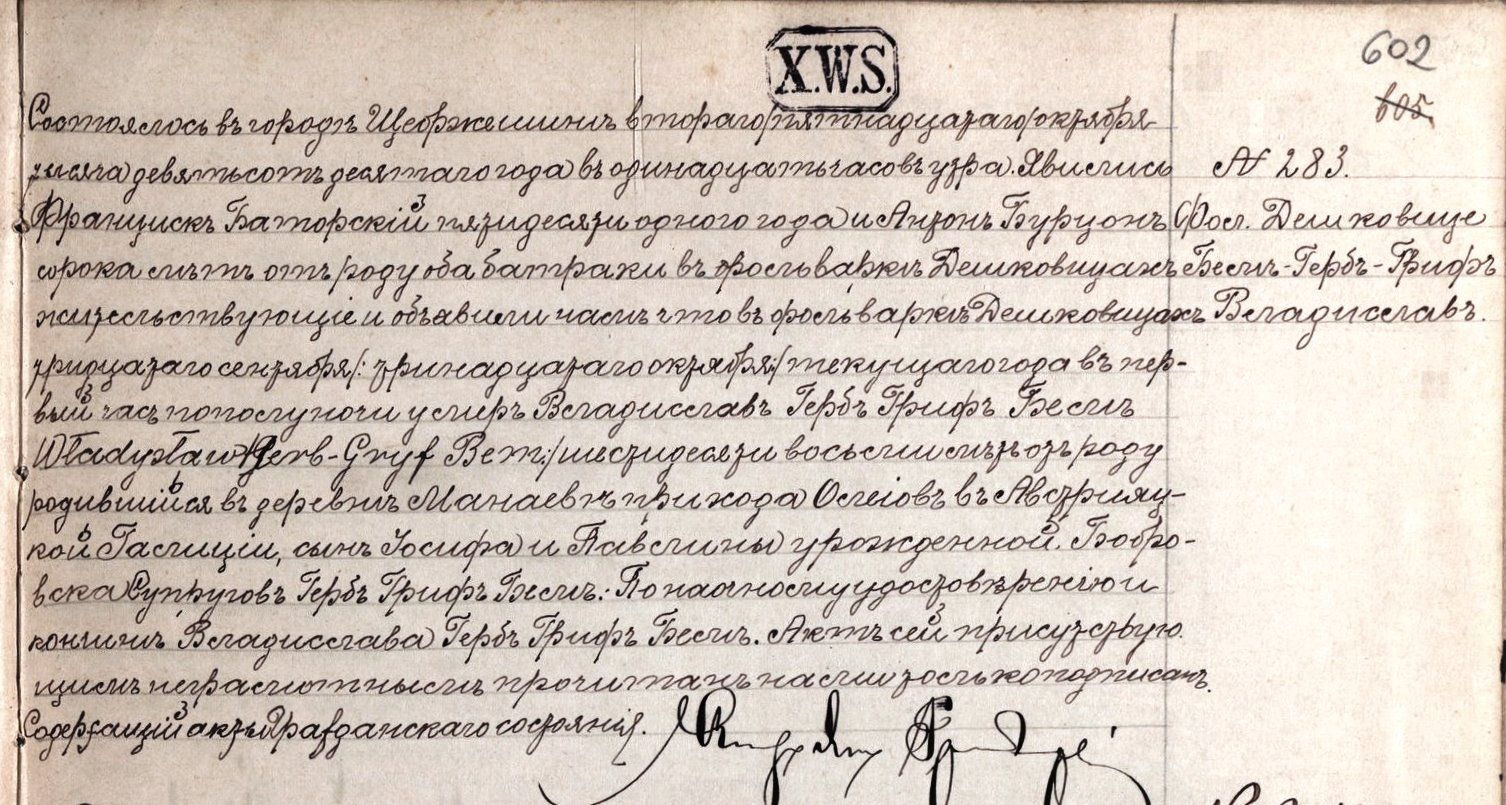 X.W.S.
602
605
Состоялось въ городѣ Щебржешинѣ втораго/пятнадцатаго/октября
тысяча девятьсотъ десятаго года въ одинадцать часовъ утра. Явились
№ 283.
Францискъ Баторскій пятидесяти одного года и Антонъ Бурцонъ
Фол. Дешковице
сорока лѣтъ отъ роду оба батраки въ фольваркѣ Дешковицахъ
Бемъ-Гербъ-Грифъ
жительствующіе и объявили намъ что въ фольваркѣ Дешковицахъ
Владиславъ.
тридцатаго сентября/:тринадцатаго октября:/текущаго года въ пер-
вый часъ пополуночи умеръ Владиславъ Гербъ Грифъ Бемъ
Władysław Herb-Gryf Bem:/шестидесяти восьми лѣтъ отъ роду
родившійся въ деревнѣ Манаевѣ прихода въ Австрияц-
кой Галиціи, сынъ Іосифа и Павлины урожденной Бобро-
вска Супруговъ Гербъ Грифъ Бемъ. По наочному удостовѣренію и
кончинѣ Владислава Гербъ Грифъ Бемъ. Актъ сей присутствую
щимъ неграмотнымъ прочитанъ нами только подписанъ.
Содержащій акты Гражданскаго состоянія.